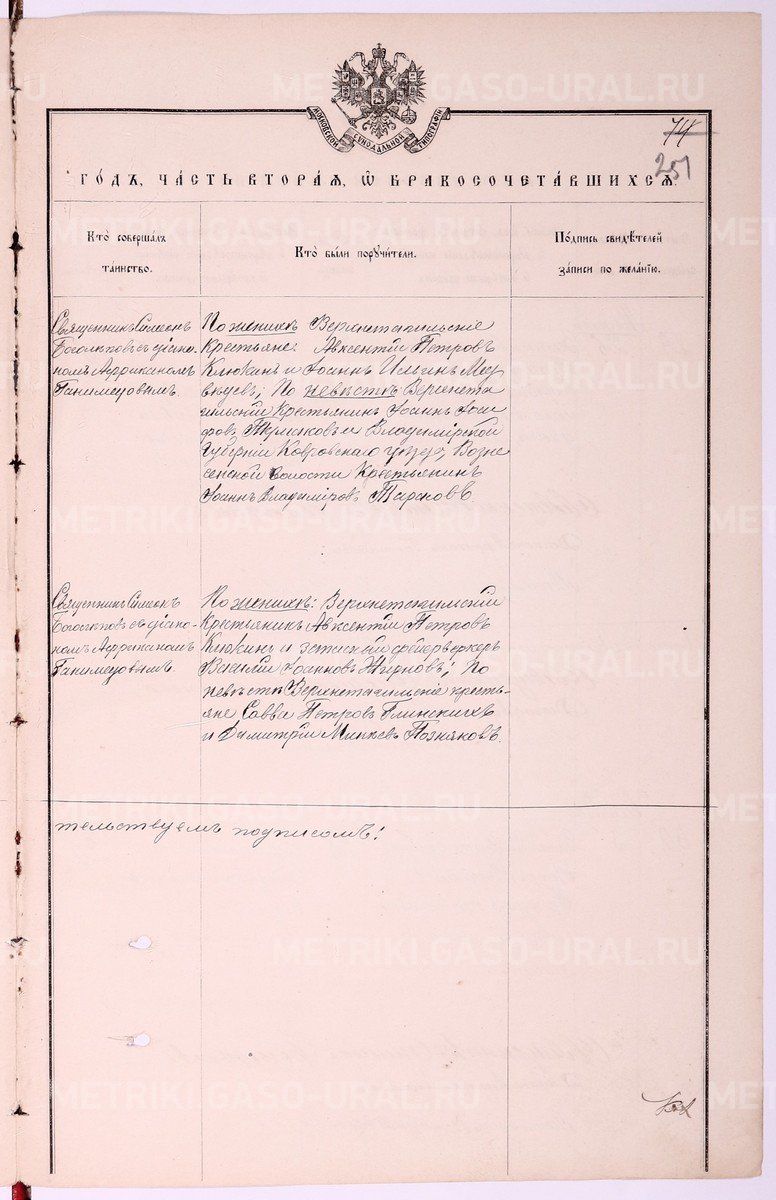 МОСКОВСКОЙ СѴНОДАЛЬНОЙ ТИПОГРАФІИ
74
251
ГОДЪ, ЧАСТЬ ВТОРАЯ, Ѽ БРАКОСОЧЕТАВШИХСЯ.
Кто совершалъ таинство.
Кто были поручители.
Подпись свидѣтелей записи по желанію.
Священникъ Симеонъ
Боголѣповъ съ діако-
номъ Африканомъ
Ганимедовымъ.
По женихѣ Верхнетагильскіе
Крестьяне: Авксентій Петровъ
Клюкинъ и Іоаннъ Ильинъ Мед
вѣдевъ; По невѣстѣ Верхнета
гильскій Крестьянинъ Іоаннъ Іоси
фовъ и Владимірской
Губерніи Ковровскаго уѣзда, Возне
сенской волости Крестьянинъ
Іоаннъ Владиміровъ
Священникъ Симеонъ
Боголѣповъ съ діако-
номъ Африканомъ
Ганимедовымъ
По женихѣ: Верхнетагильскій
Крестьянинъ Авксентій Петровъ
Клюкинъ и запасный фейерверкеръ
Василій Іоанновъ Жирновъ; По
невѣстѣ Верхнетагильскіе кресть-
яне Савва Петровъ Глинскихъ
и Димитрій Поздняковъ.
тельствуемъ подписомъ:
METRIKI.GASO-URAL.RU